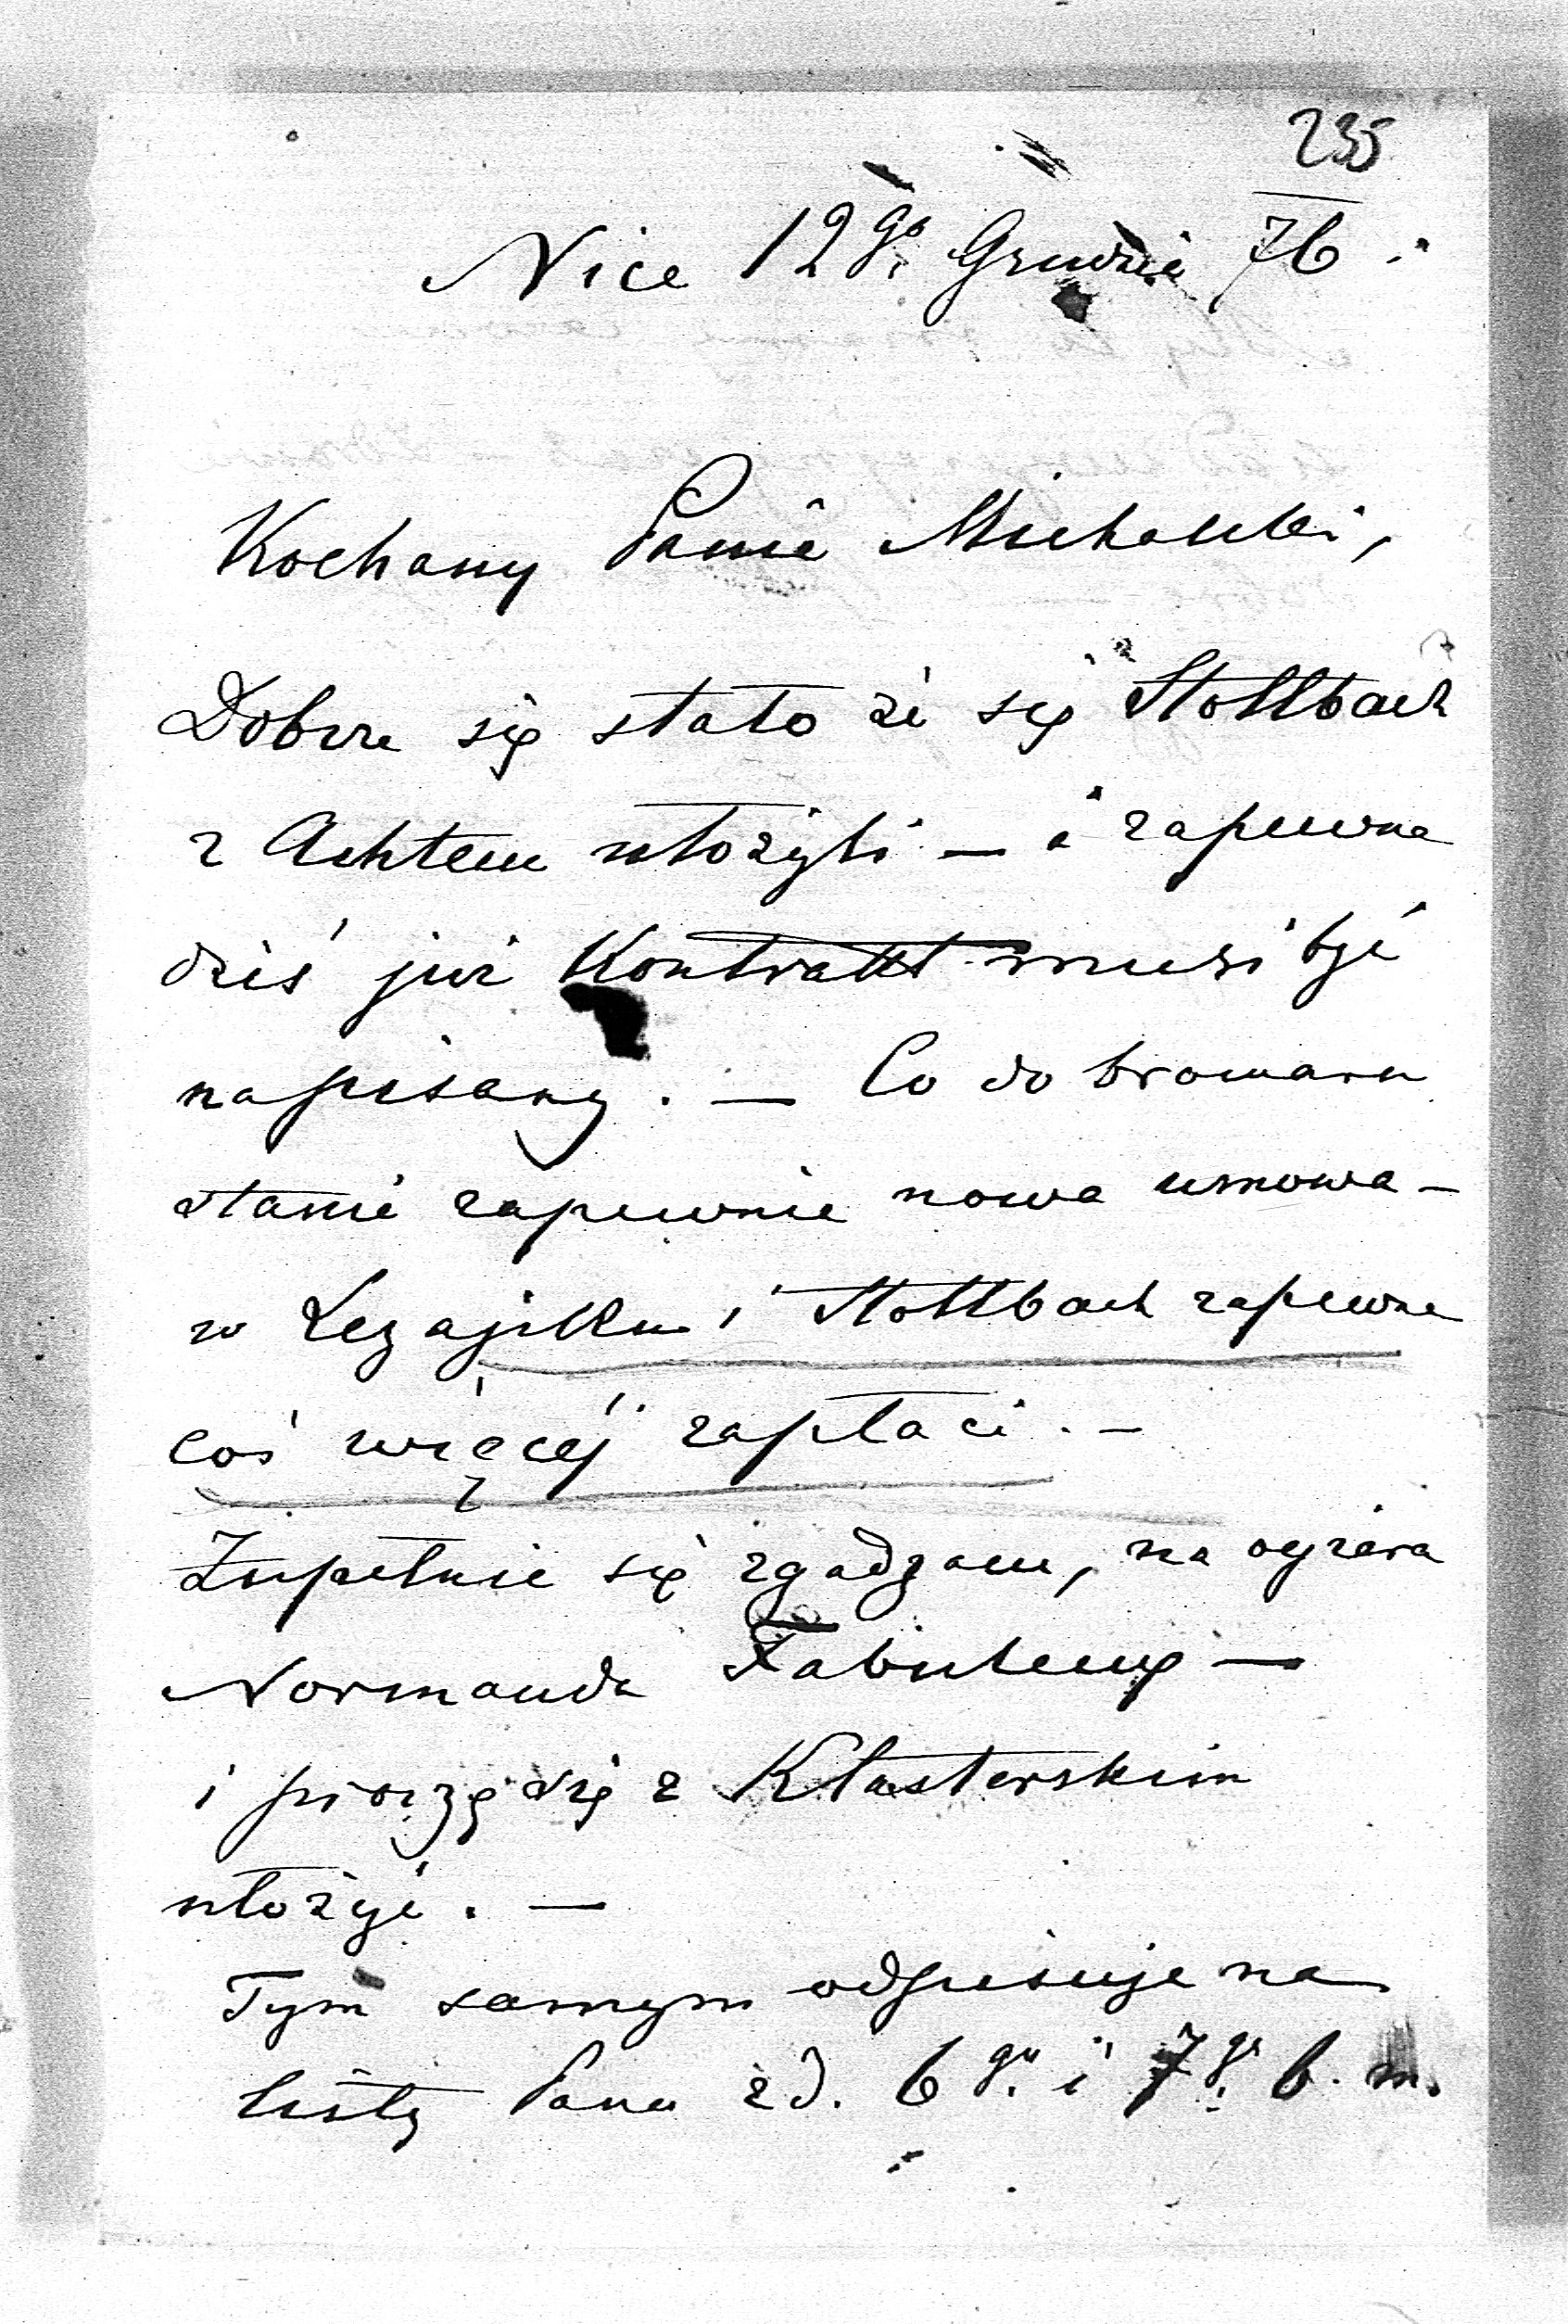 235
Nice 12go Grudnia 76.
Kochany Panie Michalski,
Dobrze się stało że się Stollbach
z Achtem ułożyli — i zapewne
dziś już Kontrakt musi być
napisany. — Co do browaru
stanie zapewnie nowa umowa —
w Leżajsku i Stollbach zapewne
coś więcéj zapłaci. —
Zupełnie się zgadzam, na ogiera
Normanda —
i proszę się z Klasterskim
ułożyć. —
Tym samym odpisuję na
listy Pana z d. 6go i 7go b. m.